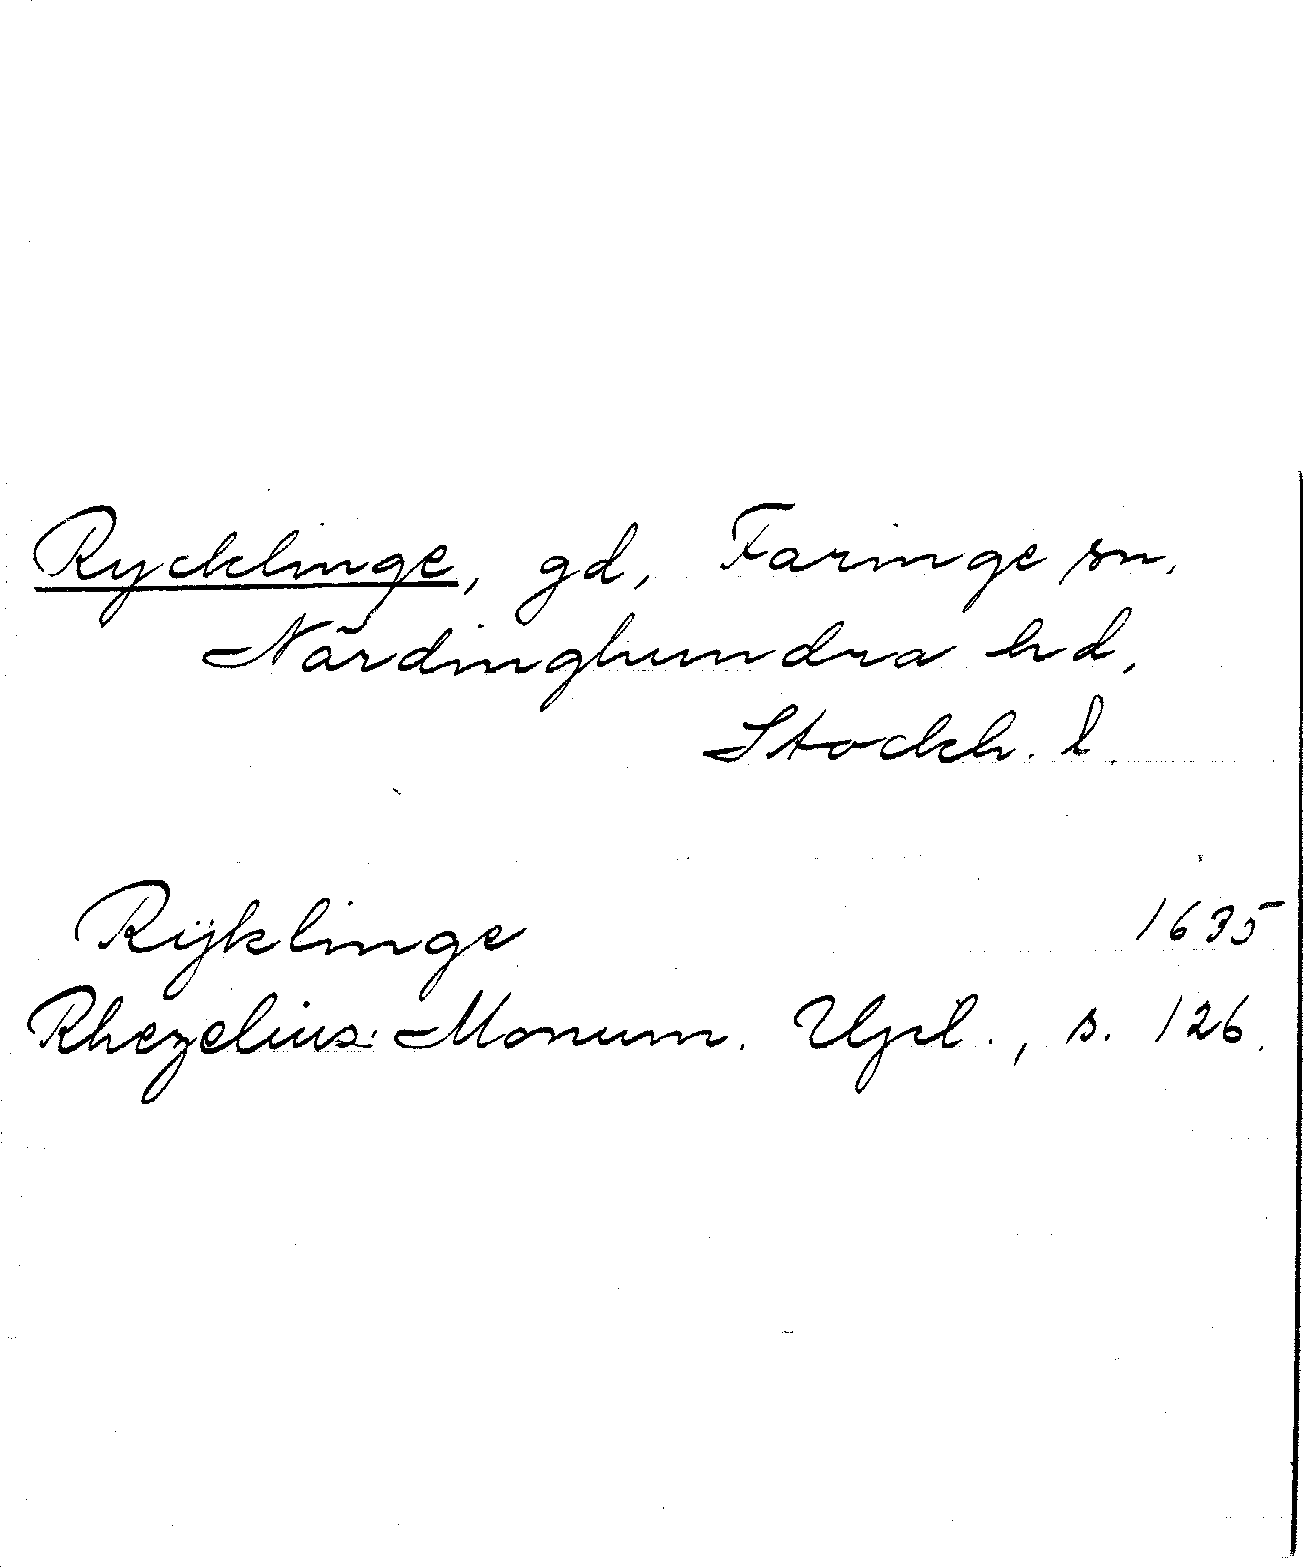 Rycklinge, gd, Faringe sn,
Närdinghundra hd,
Stockh. l.
Rÿklinge 1635
Rhezelius: Monum. Upl., s. 126.